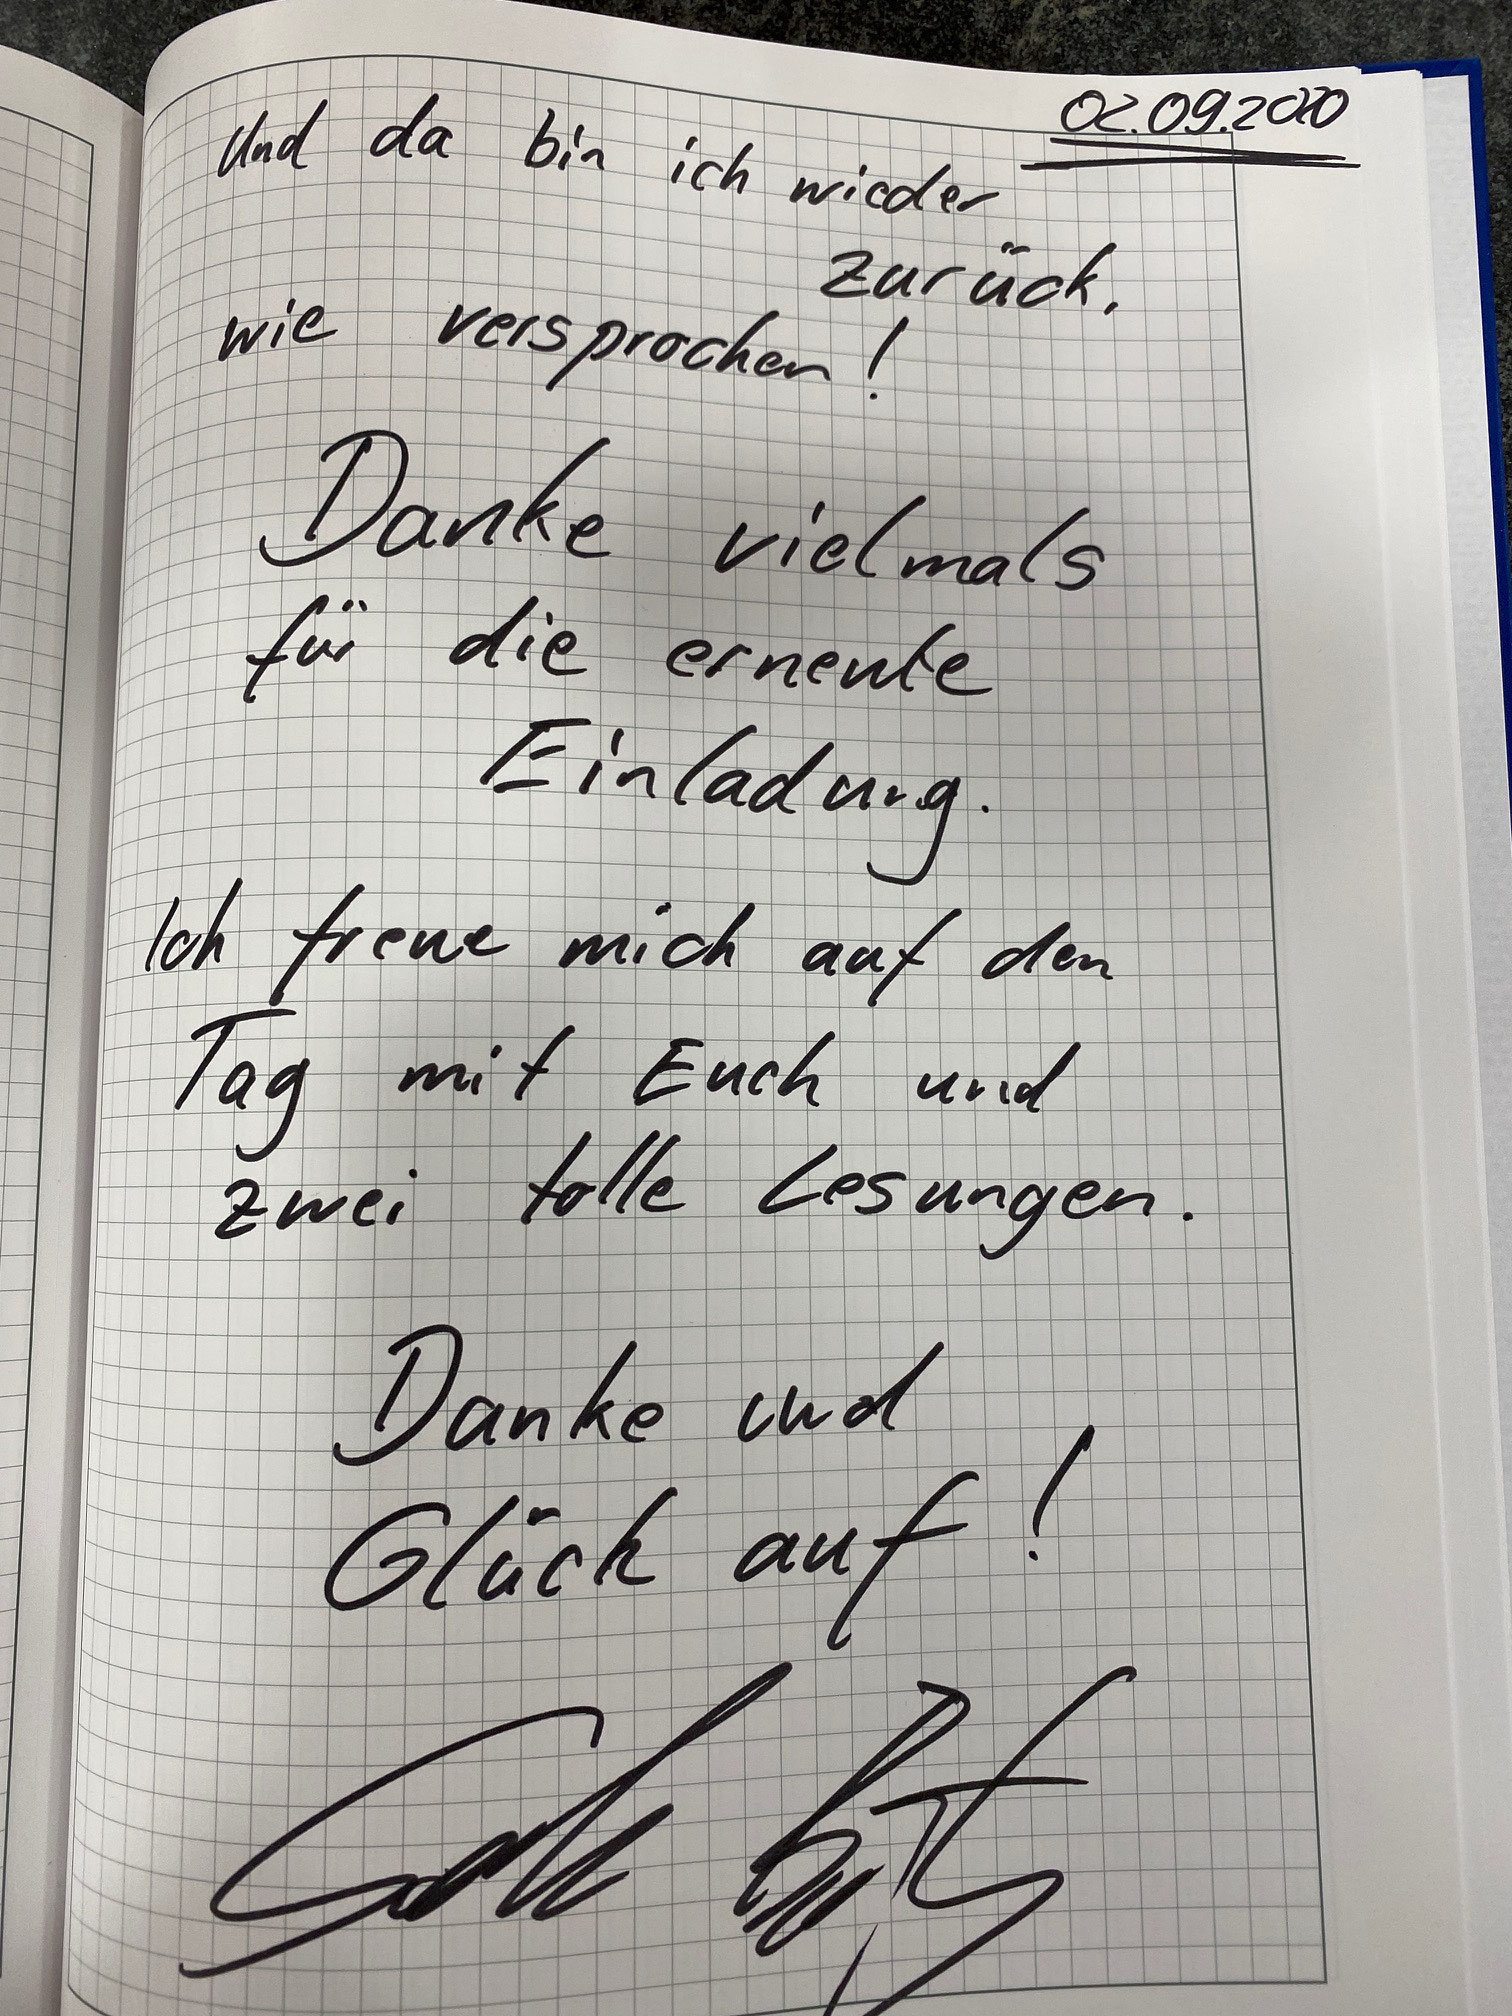 02.09.2020
Und da bin ich wieder
zurück,
wie versprochen!
Danke vielmals
für die erneute
Einladung.
Ich freue mich auf den
Tag mit Euch und
zwei tolle Lesungen.
Danke und
Glück auf!